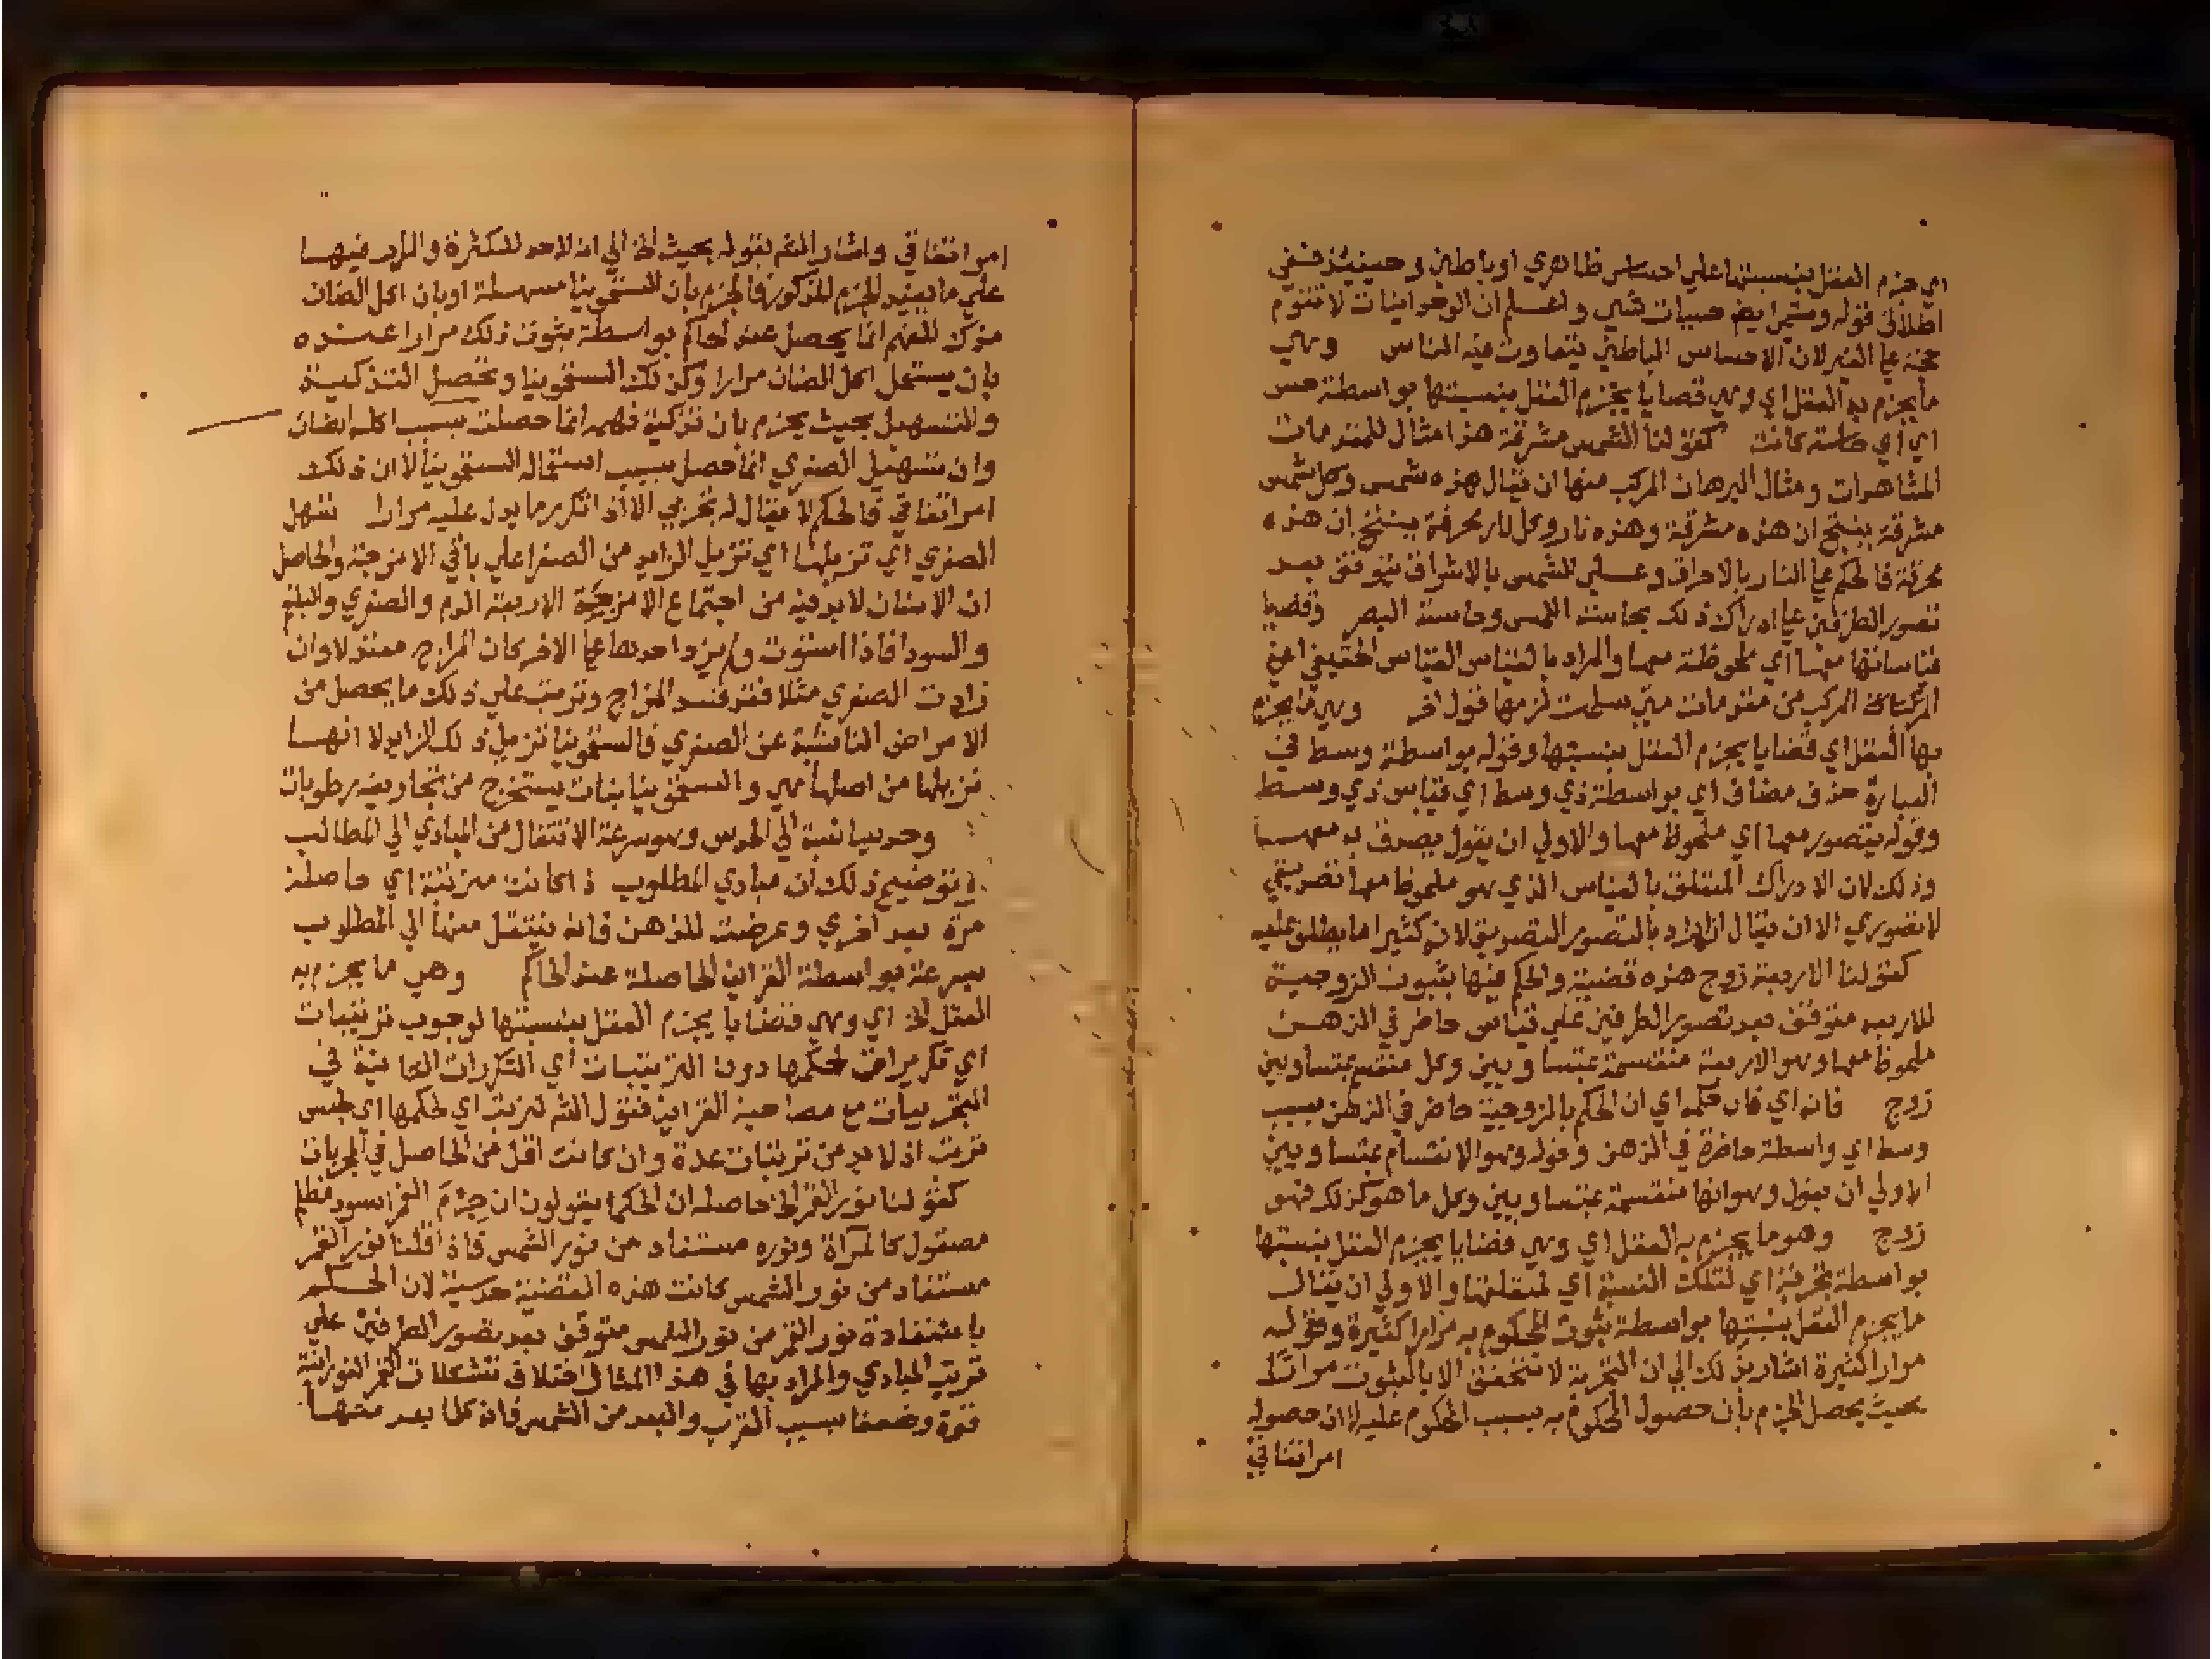 اي جزم العقل بنسبتها علي احساس ظاهري او باطني وحينيئذ ففي
اطلاق قوله ومشمرا بعض حسيات شي واعلم ان الوجدانيات لا تقوم
حجة علي الغير لان الاحساس الباطني يتفاوت فيه الناس وهي
ما يجزم به العقل اي وهي قضايا يجزم العقل بنسبتها بواسطة حس
اي اي حاسة كانت كقولنا الشمس مشرقة هذا مثال للمقدمات
المشاهدات ومثال البرهان المركب منها ان يقال هذه شمس وكل شمس
مشرقة ينتج ان هذه مشرقة وهذه نار وكل نار محرقة ينتج ان هذه
محرقة فالحكم علي النار بالاحراق وعلي الشمس بالاشراق يتوقف بعد
تصور الطرفين علي ادراك ذلك بحاسة اللمس وحاسة البصر وقضايا
قياساتها معها اي ملحوظة معها والمراد بالقياس القياس الحقيقي اعني
المركب من مقدمات متي سلمت لزمها قول اخر وهي ما يجزم
بها العقل اي قضايا يجزم العقل بنسبتها وقوله بواسطة وسط في
العبارة حذف مضاف اي بواسطة ذي وسط اي قياس ذي وسط
وقوله يتصور معها اي ملحوظ معها والاولي ان يقول يصدق به معها
وذلك لان الادراك المتعلق بالقياس الذي هو ملحوظ معها تصديقي
لا تصوري الا ان يقال المراد بالتصور التصديق لانه كثيرا ما يطلق عليه
كقولنا الاربعة زوج هذه قضية والحكم فيها بثبوت الزوجية
للاربعه متوقف بعد تصور الطرفين علي قياس حاضر في الذهن
ملحوظ معها وهو الاربعة منقسمة بمتساويين وكل منقسم بمتساويين
زوج فانه اي فان حكمه اي ان الحكم بالزوجية حاضر في الذهن بسبب
وسط اي واسطة حاضرة في الذهن وقوله وهو الانقسام بمتساويين
الاولي ان يقول وهو انها منقسمة بمتساويين وكل ما هو كذلك فهو
زوج وهو ما يجزم به العقل اي وهي قضايا يجزم العقل بنسبتها
بواسطة تجربة اي لتلك النسبة اي لمتعلقها والاولي ان يقال
ما يجزم العقل بنسبتها بواسطة ثبوت المحكوم به مرارا كثيرة وقوله
مرارا كثيرة اشار بذلك الي ان التجربة لا تتحقق الا بالثبوت مرارا
بحيث يحصل الجزم بان حصول المحكوم به بسبب المحكوم عليه لا ان حصوله
امر اتفاقي
امر اتفاقي واشار المص بقوله بحيث الخ الي انه لا حد للكثرة والمدار فيها
علي ما يفيد الجزم المذكور فالجزم بان السقمونيا مسهلة او بان اكل الضان
مزك للفهم انما يحصل عند الحاكم بواسطة ثبوت ذلك مرارا عنده
بان يستعمل اكل الضان مرارا وكذلك السقمونيا وتحصل التزكية
والتسهيل بحيث يجزم بان تزكية فهمه انما حصلت بسبب اكله الضان
وان تسهيل الصفري انما حصل بسبب استعماله السقمونيا لا ان ذلك
امر اتفاقي فالحكم لا يقال له تجربي الا اذا تكرر ما يدل عليه مرارا تسهل
الصفري اي تزيلها اي تزيل الزايد من الصفرا علي باقي الامزجة والحاصل
ان الانسان لا بد فيه من اجتماع الامزجة الاربعة الدم والصفري والبلغم
والسودا فاذا استوت ولم يزد احدها علي الاخر كان المزاج معتدلا وان
زادت الصفري مثلا فقد فسد المزاج وترتب علي ذلك ما يحصل من
الامراض الناشية عن الصفري فالسقمونيا تزيل ذلك الزايد لا انها
تزيلها من اصلها مهي والسقمونيا نبات يستخرج من تجاويفه رطوبات
وحدسيا نسبة الي الحدس وهو سرعة الانتقال من المبادي الي المطالب
وتوضيح ذلك ان مبادي المطلوب اذا كانت مرتبة اي حاصلة
مرة بعد اخري وعرضت للذهن فانه ينتقل منها الي المطلوب
بسرعة بواسطة القراين الحاصلة عند الحاكم وهي ما يجزم به
العقل الخ اي وهي قضايا يجزم العقل بنسبتها لوجوب ترتيبات
اي تكريرات لحكمها دون الترتيبات اي التكررات الكاينة في
التجربيات مع مصاحبة القراين فقول المص لترتب اي لحكمها اي جنس
ترتب اذ لا بد من ترتبات عدة وان كانت اقل من الحاصل في المجربات
كقولنا نور القمر الخ حاصله ان الحكما يقولون ان جزم القمر اسود مظلم
مصقول كالمرآة ونوره مستفاد من نور الشمس فاذا قلنا نور القمر
مستفاد من نور الشمس كانت هذه القضية حدسية لان الحكم
باستفادة نور القمر من نور الشمس متوقف بعد تصور الطرفين علي
ترتب المبادي والمراد بها في هذا المثال اختلاف تشكلات القمر النورانية
قوة وضعفا بسبب القرب والبعد من الشمس فانه كلما بعد منها